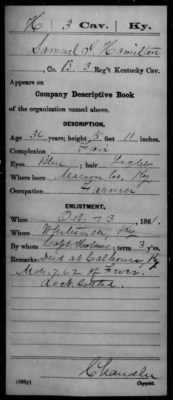 H | 3 Cav. | Ky.
Samuel D. Hamilton
, Co. B, 3 Reg't Kentucky Cav.
Appears on
Company Descriptive Book
of the organization named above.
DESCRIPTION.
Age 30 years; height 5 feet 11 inches.
Complexion Fair
Eyes Blue ; hair Light
Where born Marion Co, Ky
Occupation Farmer
ENLISTMENT.
When Oct. 23, 1861.
Where Ky
By whom Capt. ; term 3 y'rs.
Remarks: Died at Calhoun, Ky
62 of Fever.
Chandler
Copyist.